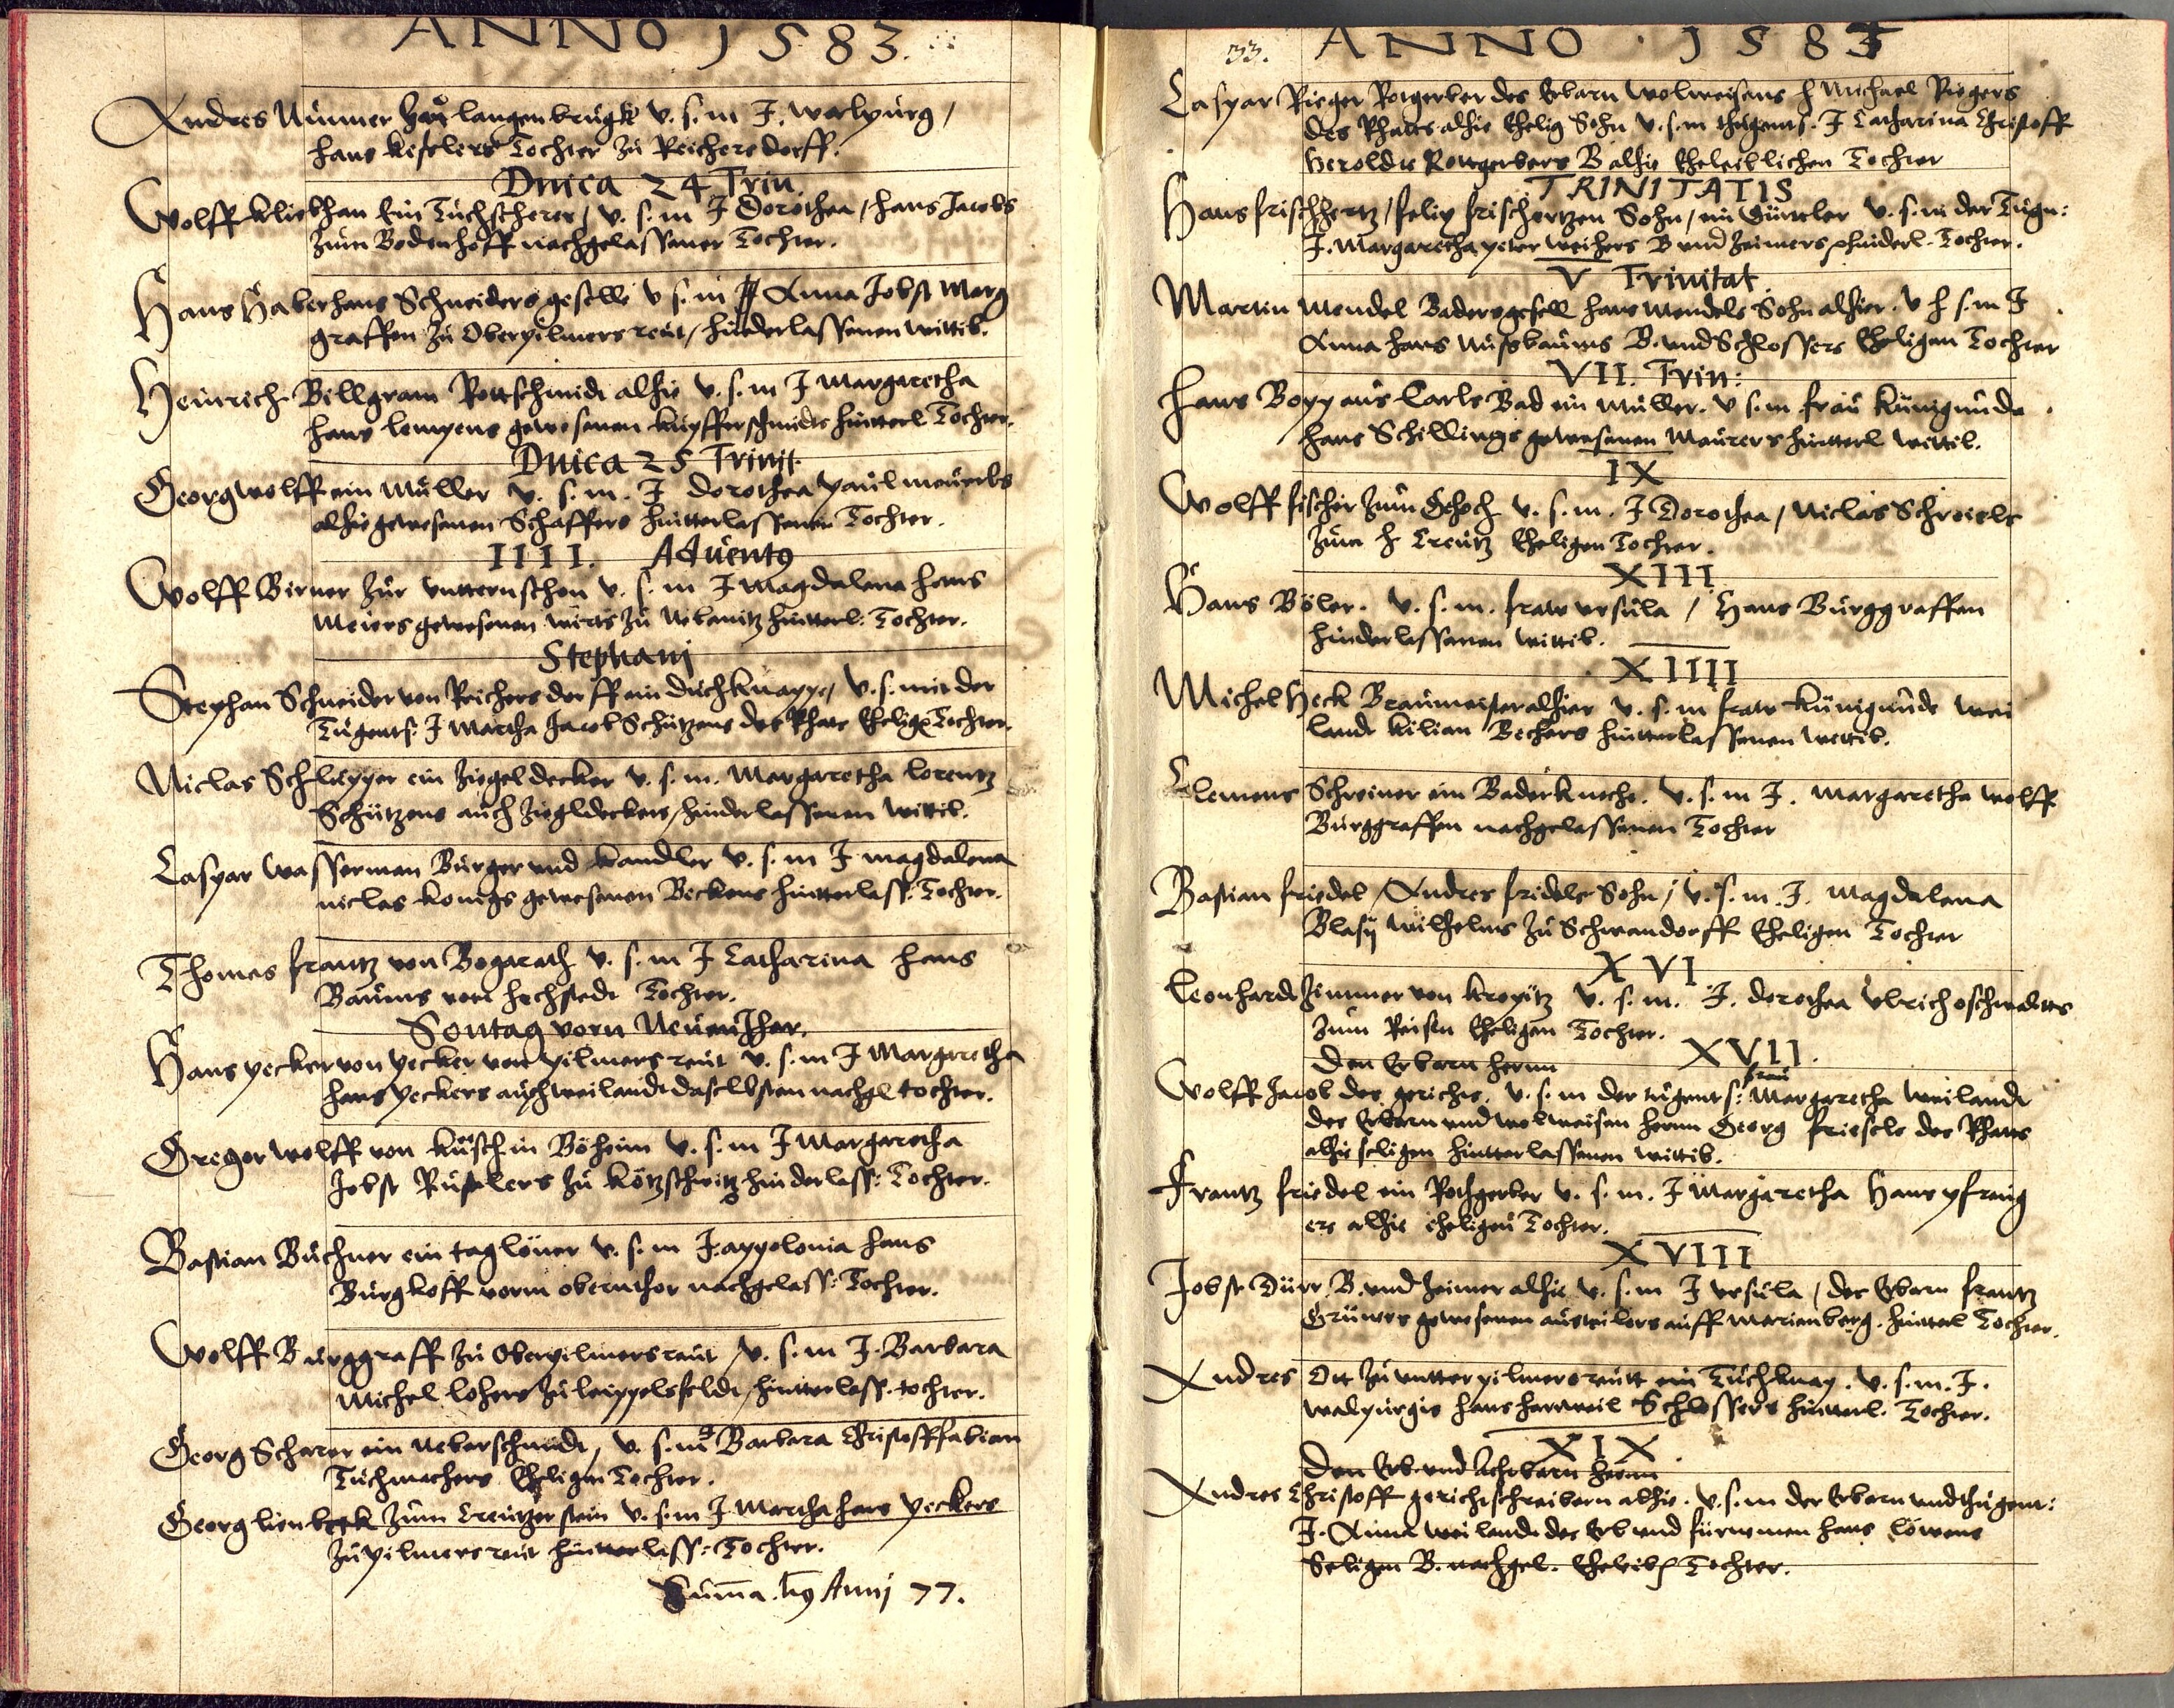 ANNO 1583.
Andres Nünner zur langenbrügk v. s. m J. walpurg /
hans keßlers Tochter zu Reichersdorff.
Dnica 24 Trin.
Wolff kliebhan Ein Tuchscherer / v. s. m J Dorothea / hans Jacobs
zum Bodenhoff nachgelassener Tochter.
Hans Haberhans Schneidersgeselle v s. m Anna Jobst Marg
graffen zu Oberpilmersreut / hinderlassenen wittib.
Heinrich Billgram Rottschmidt alhie v. s. m J Margaretha
hans lempens gewesenen kupfferschmidts hinterl Tochter.
Dnica 25 Trinit.
Georg Wolff ein Müller v. s. m. J dorothea paul meuerls
alhie gewesenen Schaffers hinterlassenen Tochter.
IIII. Aduentq
Wolff Birner zur unternschon v. s. m J Magdalena hans
Meiers gewesenen wirts zu Nebanitz hinterl: Tochter.
Stephanj
Stephan Schneider von Reichersdorff ein duchknappe / v. s. mit der
Tugents: J Martha Jacob Schützens des Rhats Ehelige Tochter.
Niclas Schlapper ein ziegeldecker v. s. m. Margaretha lorentz
Schützens auch ziegldeckers / hinderlassenen wittib.
Caspar Wasserman Bürger und kandler v. s. m J magdalena
niclas königs gewesenen Beckens hinterlass: Tochter.
Thomas frantz von Bogarath v. s. m J Catharina hans
Baums von hochstedt Tochter.
Sontag vorn Neuen Jhar.
Hans pecker von pecker von pilmersreut v. s. m J Margaretha
hans peckers auch weilandt daselbsten nachgl tochter.
Gregor Wolff von kutsch in Böheim v. s. m J Margaretha
Jobst Rüstlers zu kötzschwitz hinderlass: Tochter.
Bastian Büchner ein taglöner v. s. m J. appolonia hans
Burgkoff vorm obernthor nachgelass: Tochter.
Wolff Burggraff zu Oberpilmersreut / v. s. m J. Barbara
Michel lohers zu leippelsfeldt / hinterlass. tochter.
Georg Scharer ein neberschmidt / v. s. m J Barbara Christoff fabian
Tuchmachers Eheligen Tochter.
Georg lienbeck zum Creutzerstein v. s. m J Martha hans peckers
zu pilmersreut hinterlass: Tochter.
Suma. hq Annj 77.
33. ANNO 1584
Caspar Rieger Rotgerber des Erbarn wolweisens h Michael Riegers
des Rhatts alhie Ehelig Sohn v. s. m thugents. J Catharina Christoff
heroldts Rottgerbers B alhie Eheleiblichen Tochter
TRINITATIS
Hans frischhertz / felix frischertzen Sohn / ein Gürtler v. s. m der Tugn:
J. Margaretha peter weihers B und zeimers hinderl. Tochter.
V Trinitat.
Martin Mendel Badersgesell hans Mendels Sohn alhier. v h s. m J
Anna hans Nussbaums B. und Schlossers Eheligen Tochter
VII. Trin:
Hans Bopp aus Carls Bad ein Müller. v s. m frau künigunda
hans Schillings gewesenen Maurers hinterl wittib.
IX
Wolff fischer zum Gehoch v. s. m. J Dorothea / Niclas Schreiels
zum h Creutz Eheligen Tochter.
XIII
Hans Böler. v. s. m. fraw ursula / Hans Burggraffen
hinderlassenen wittib.
XIIII
Michel Heck Braumeister alhier v. s. m fraw künigundt wei
landt kilian Bechers hinterlassenen wettib.
Clemens Schreiner ein Baderknecht. v. s. m J. Margaretha wolff
Burggraffen nachgelassenen Tochter
Bastian friedel / Andres fridels Sohn / v. s. m. J. Magdalena
Blasy wilhelms zu Schwandorff Eheligen Tochter
XVI
Leonhardt Zimmer von kropitz v. s. m. J. dorothea Ulrich oschwaldtes
zum Reisen Eheligen Tochter.
XVII.
Den Erbarn herrn
Wolff Jacob des gerichts. v. s. m der tugents: frau Margaretha weilandt
des Erbarn und wolweisen herrn Georg friesels des Rhatts
alhie seligen hinterlassenen wittib.
Frantz friedel ein Rothgerber v. s. m. J Margaretha Hans pfreug
ers alhie eheligen Tochter.
XVIII
Jobst Dürr B. und zeimer alhie v. s. m J ursula / des Erbarn frantz
Grüners gewesenen austeilers auff Marienberg. hinterl Tochter.
Andres Ott zu unterpilmersreutt ein Tuchknap. v. s. m. J.
walpurgis hans hartweil Schlossers hinterl. Tochter.
XIX
Den Erb. und Achtbarn herrn
Andres Christoff gerichtschreibern alhie. v. s. m der Erbarn und thugent:
J. Anna weilandt des Erb und fürnemen hans löwens
Seligen B. nachgel. Eheleib. Tochter.